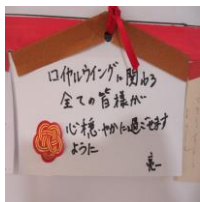 ロイヤルウイングに関わる
全ての皆様が
心穏やかに過ごせます
ように
亮一